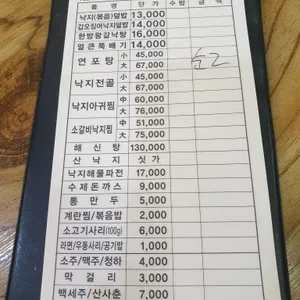 품 명 단 가 수 량 금 액
낙지(볶음)덮밥 13,000
갑오징어낙지덮밥 14,000
한방왕갈낙탕 16,000
얼큰뚝배기 14,000
연포탕 小 45,000
大 67,000
낙지전골 小 45,000
大 67,000
낙지아귀찜 中 60,000
大 76,000
소갈비낙지찜 中 51,000
大 75,000
해신탕 130,000
산낙지 싯가
낙지해물파전 17,000
수제돈까스 9,000
통만두 5,000
계란찜/볶음밥 2,000
소고기사리(100g) 6,000
라면/우동사리/공기밥 1,000
소주/맥주/청하 4,000
막걸리 3,000
백세주/산사춘 7,000